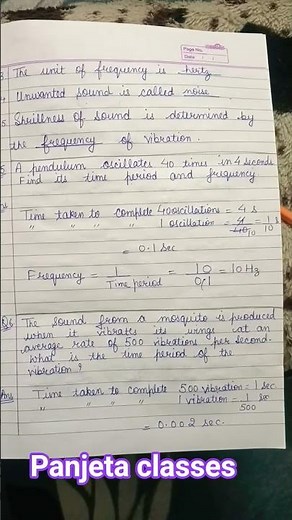 Page No.
Date
3 The unit of frequency is hertz
4 Unwanted sound is called noise
5 Shrillness of sound is determined by
the frequency of vibration.
5 A pendulum oscillates 40 times in 4 seconds
Find its time period and frequency
Time taken to complete 40 oscillations = 4 s
" " " " 1 oscillation = 4/40 10 = 1/10 s
= 0.1 sec
Frequency = 1/Time period = 10/0.1 = 10 Hz
Q6 The sound from a mosquito is produced
when it vibrates its wings at an
average rate of 500 vibrations per second.
What is the time period of the
vibration?
Ans Time taken to complete 500 vibration = 1 sec
" " " " 1 vibration = 1/500 sec
= 0.002 sec.
Panjeta classes